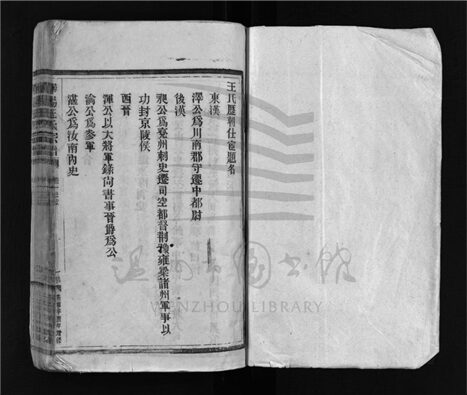 王氏歷朝仕宦題名
東漢
澤公為川南郡守遷中都尉
後漢
昶公為兗州刺史遷司空都督荊豫雍梁諸州軍事以
功封京陵侯
西晉
渾公以大將軍錄尚書事晉爵為公
淪公為參軍
湛公為汝南內史
溫州市圖書館
WENZHOU LIBRARY